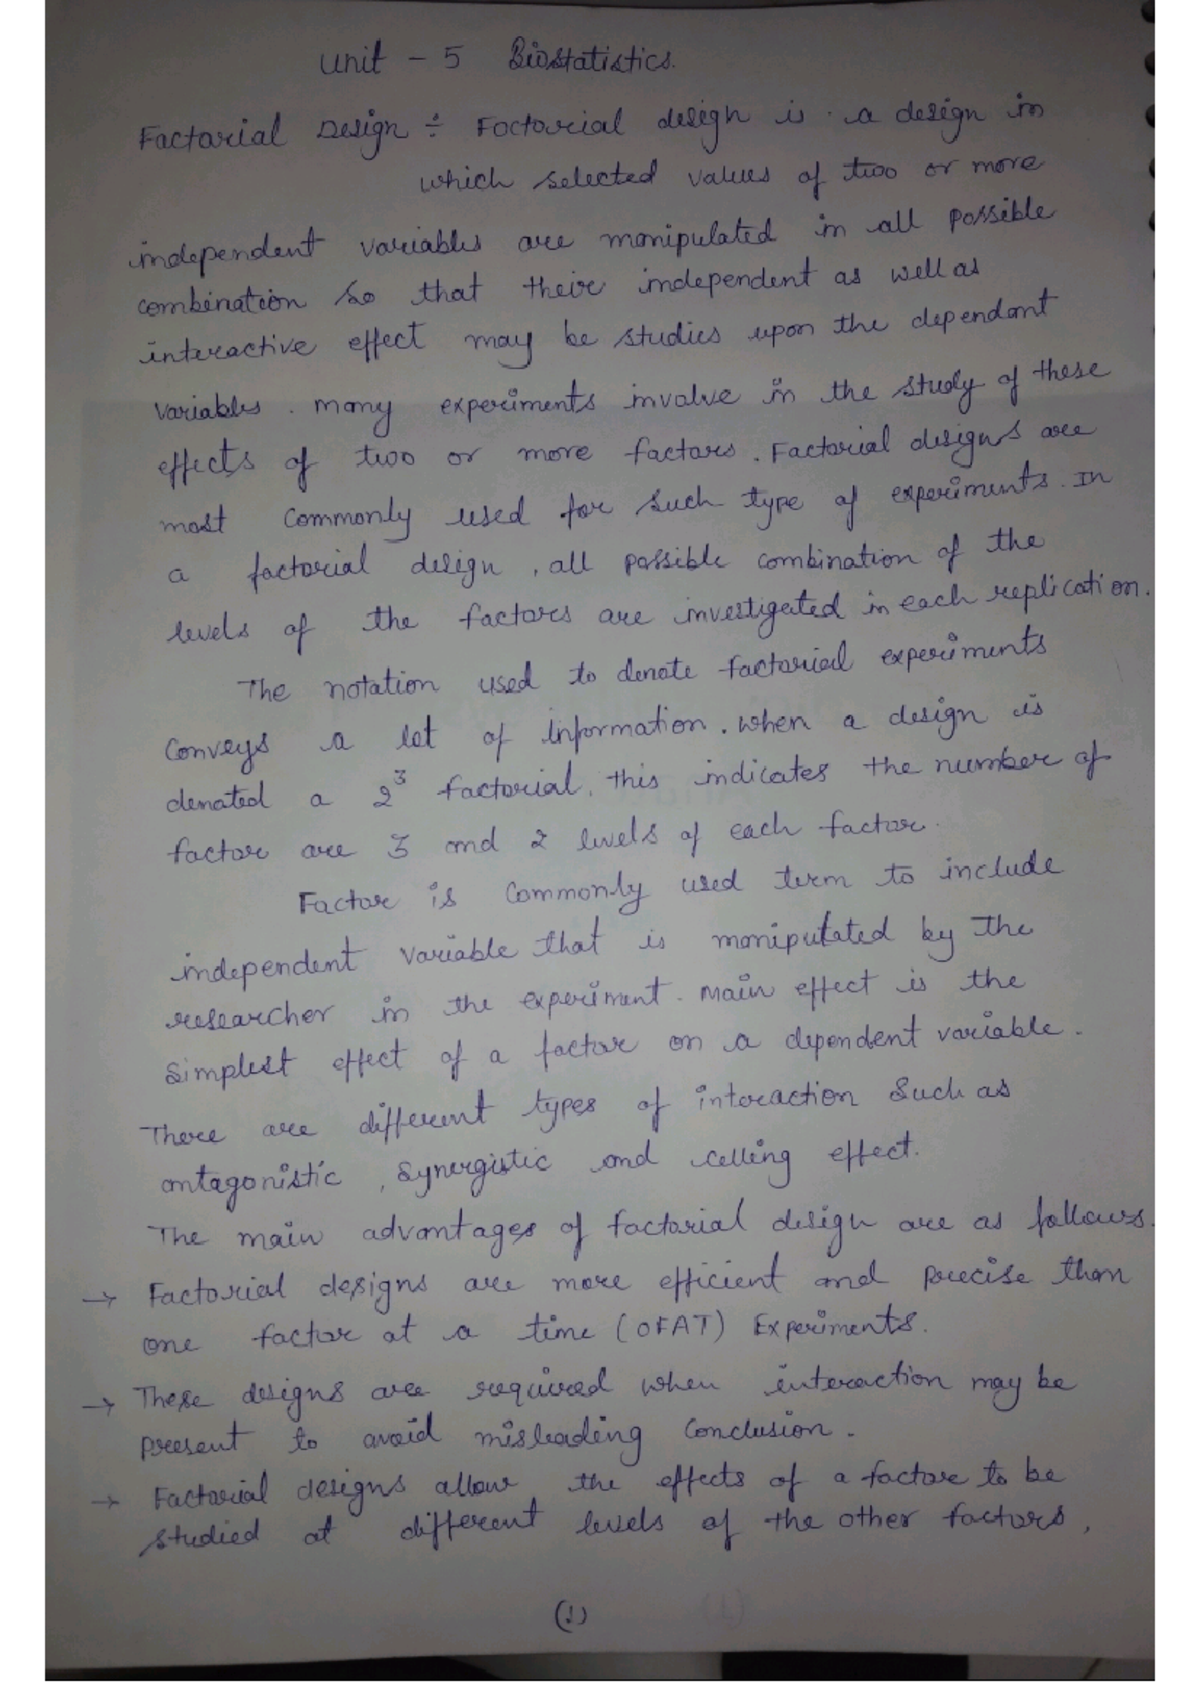 Unit - 5 Biostatistics.
Factorial Design ÷ Factorial design is a design in
which selected values of two or more
independent variables are manipulated in all possible
combination so that their independent as well as
interactive effect may be studies upon the dependant
variables. Many experiments involve in the study of these
effects of two or more factors. Factorial designs are
most commonly used for such type of experiments. In
a factorial design, all possible combination of the
levels of the factors are investigated in each replication.
The notation used to denote factorial experiments
conveys a lot of information. when a design is
denoted a 2³ factorial, this indicates the number of
factor are 3 and 2 levels of each factor.
Factor is commonly used term to include
independent variable that is manipulated by the
researcher in the experiment. Main effect is the
simplest effect of a factor on a dependent variable.
There are different types of interaction such as
antagonistic, synergistic and celling effect.
The main advantages of factorial design are as follows.
→ Factorial designs are more efficient and precise than
one factor at a time (OFAT) Experiments.
→ These designs are required when interaction may be
present to avoid misleading conclusion.
→ Factorial designs allow the effects of a factor to be
studied at different levels of the other factors,
(1)